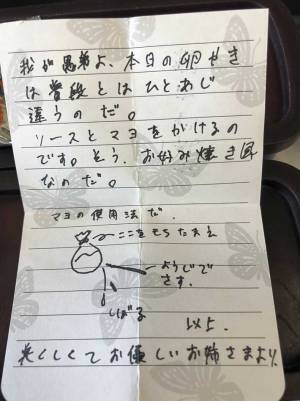 我が兄弟よ、本日の卵やき
は普段とはひとあじ
違うのだ。
ソースとマヨをかけるの
です。そう、お好み焼き風
なのだ。
マヨの使用法だ.
ここをもちたまえ
ようじで
さす.
しぼる
以上.
美しくてお優しいお姉さまより